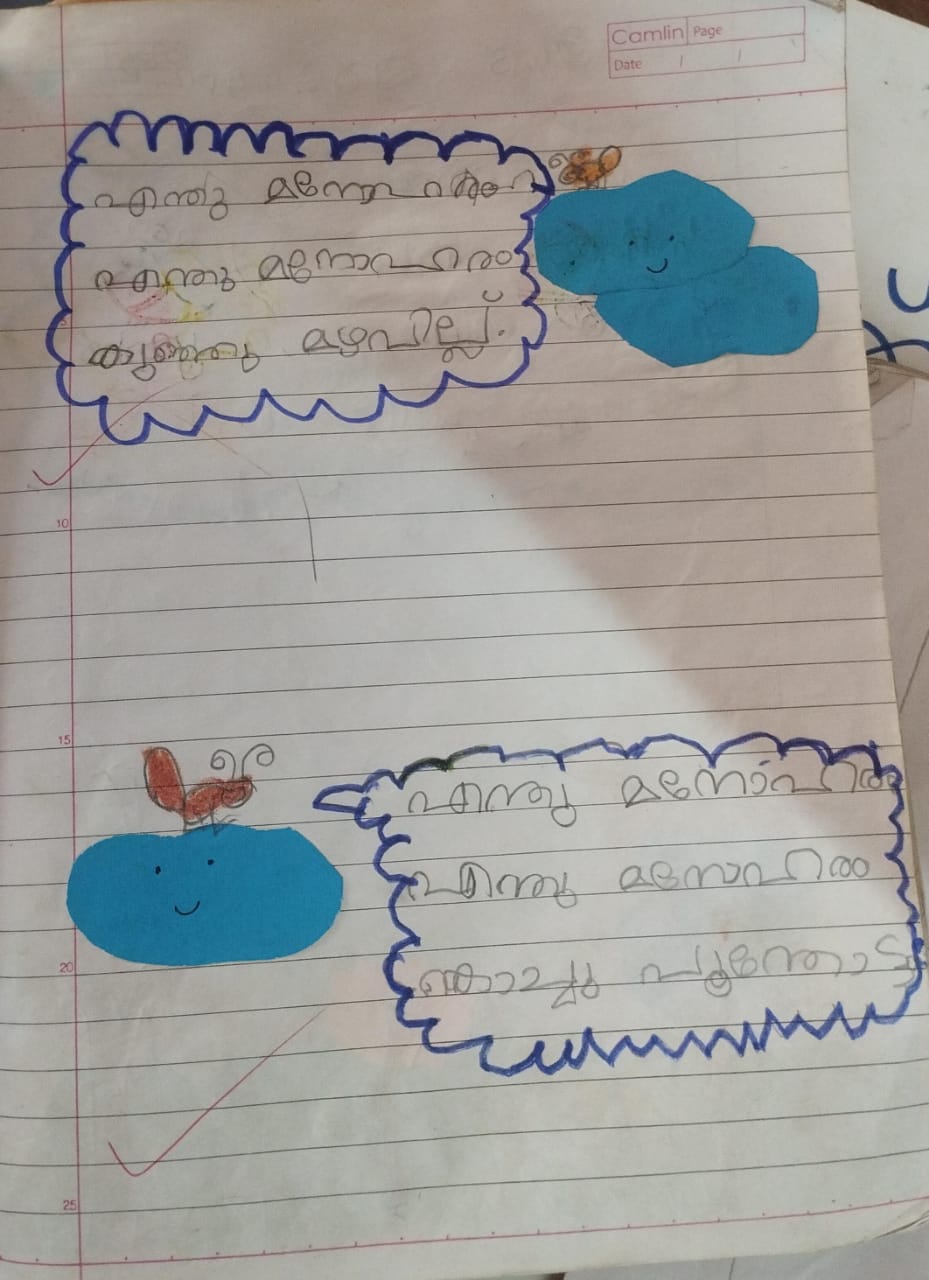 Camlin Page
Date
എന്തു മനോഹരം
എന്തു മനോഹരം
കുഞ്ഞു മഴവില്ല്.
10
15
എന്തു മനോഹരം
എന്തു മനോഹരം
കൊച്ചു പൂന്തോട്ടം
20
25